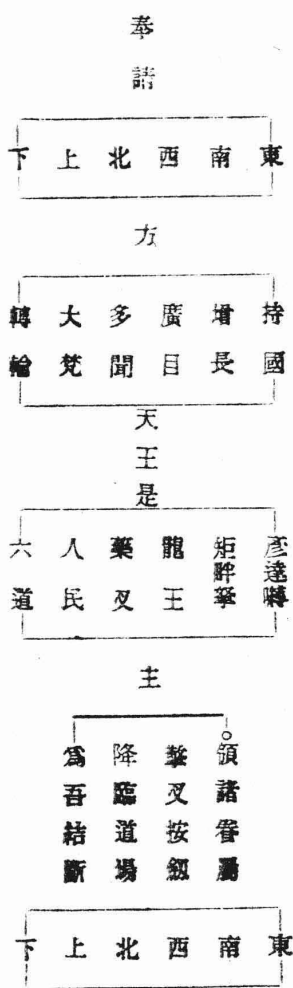 奉請
東
南
西
北
上
下
方
持國
增長
廣目
多聞
大梵
轉輪
天王是
彦達嚩
矩畔拏
龍王
藥叉
人民
六道
主
領諸眷屬
擎叉按劔
降臨道場
爲吾結斷
東
南
西
北
上
下